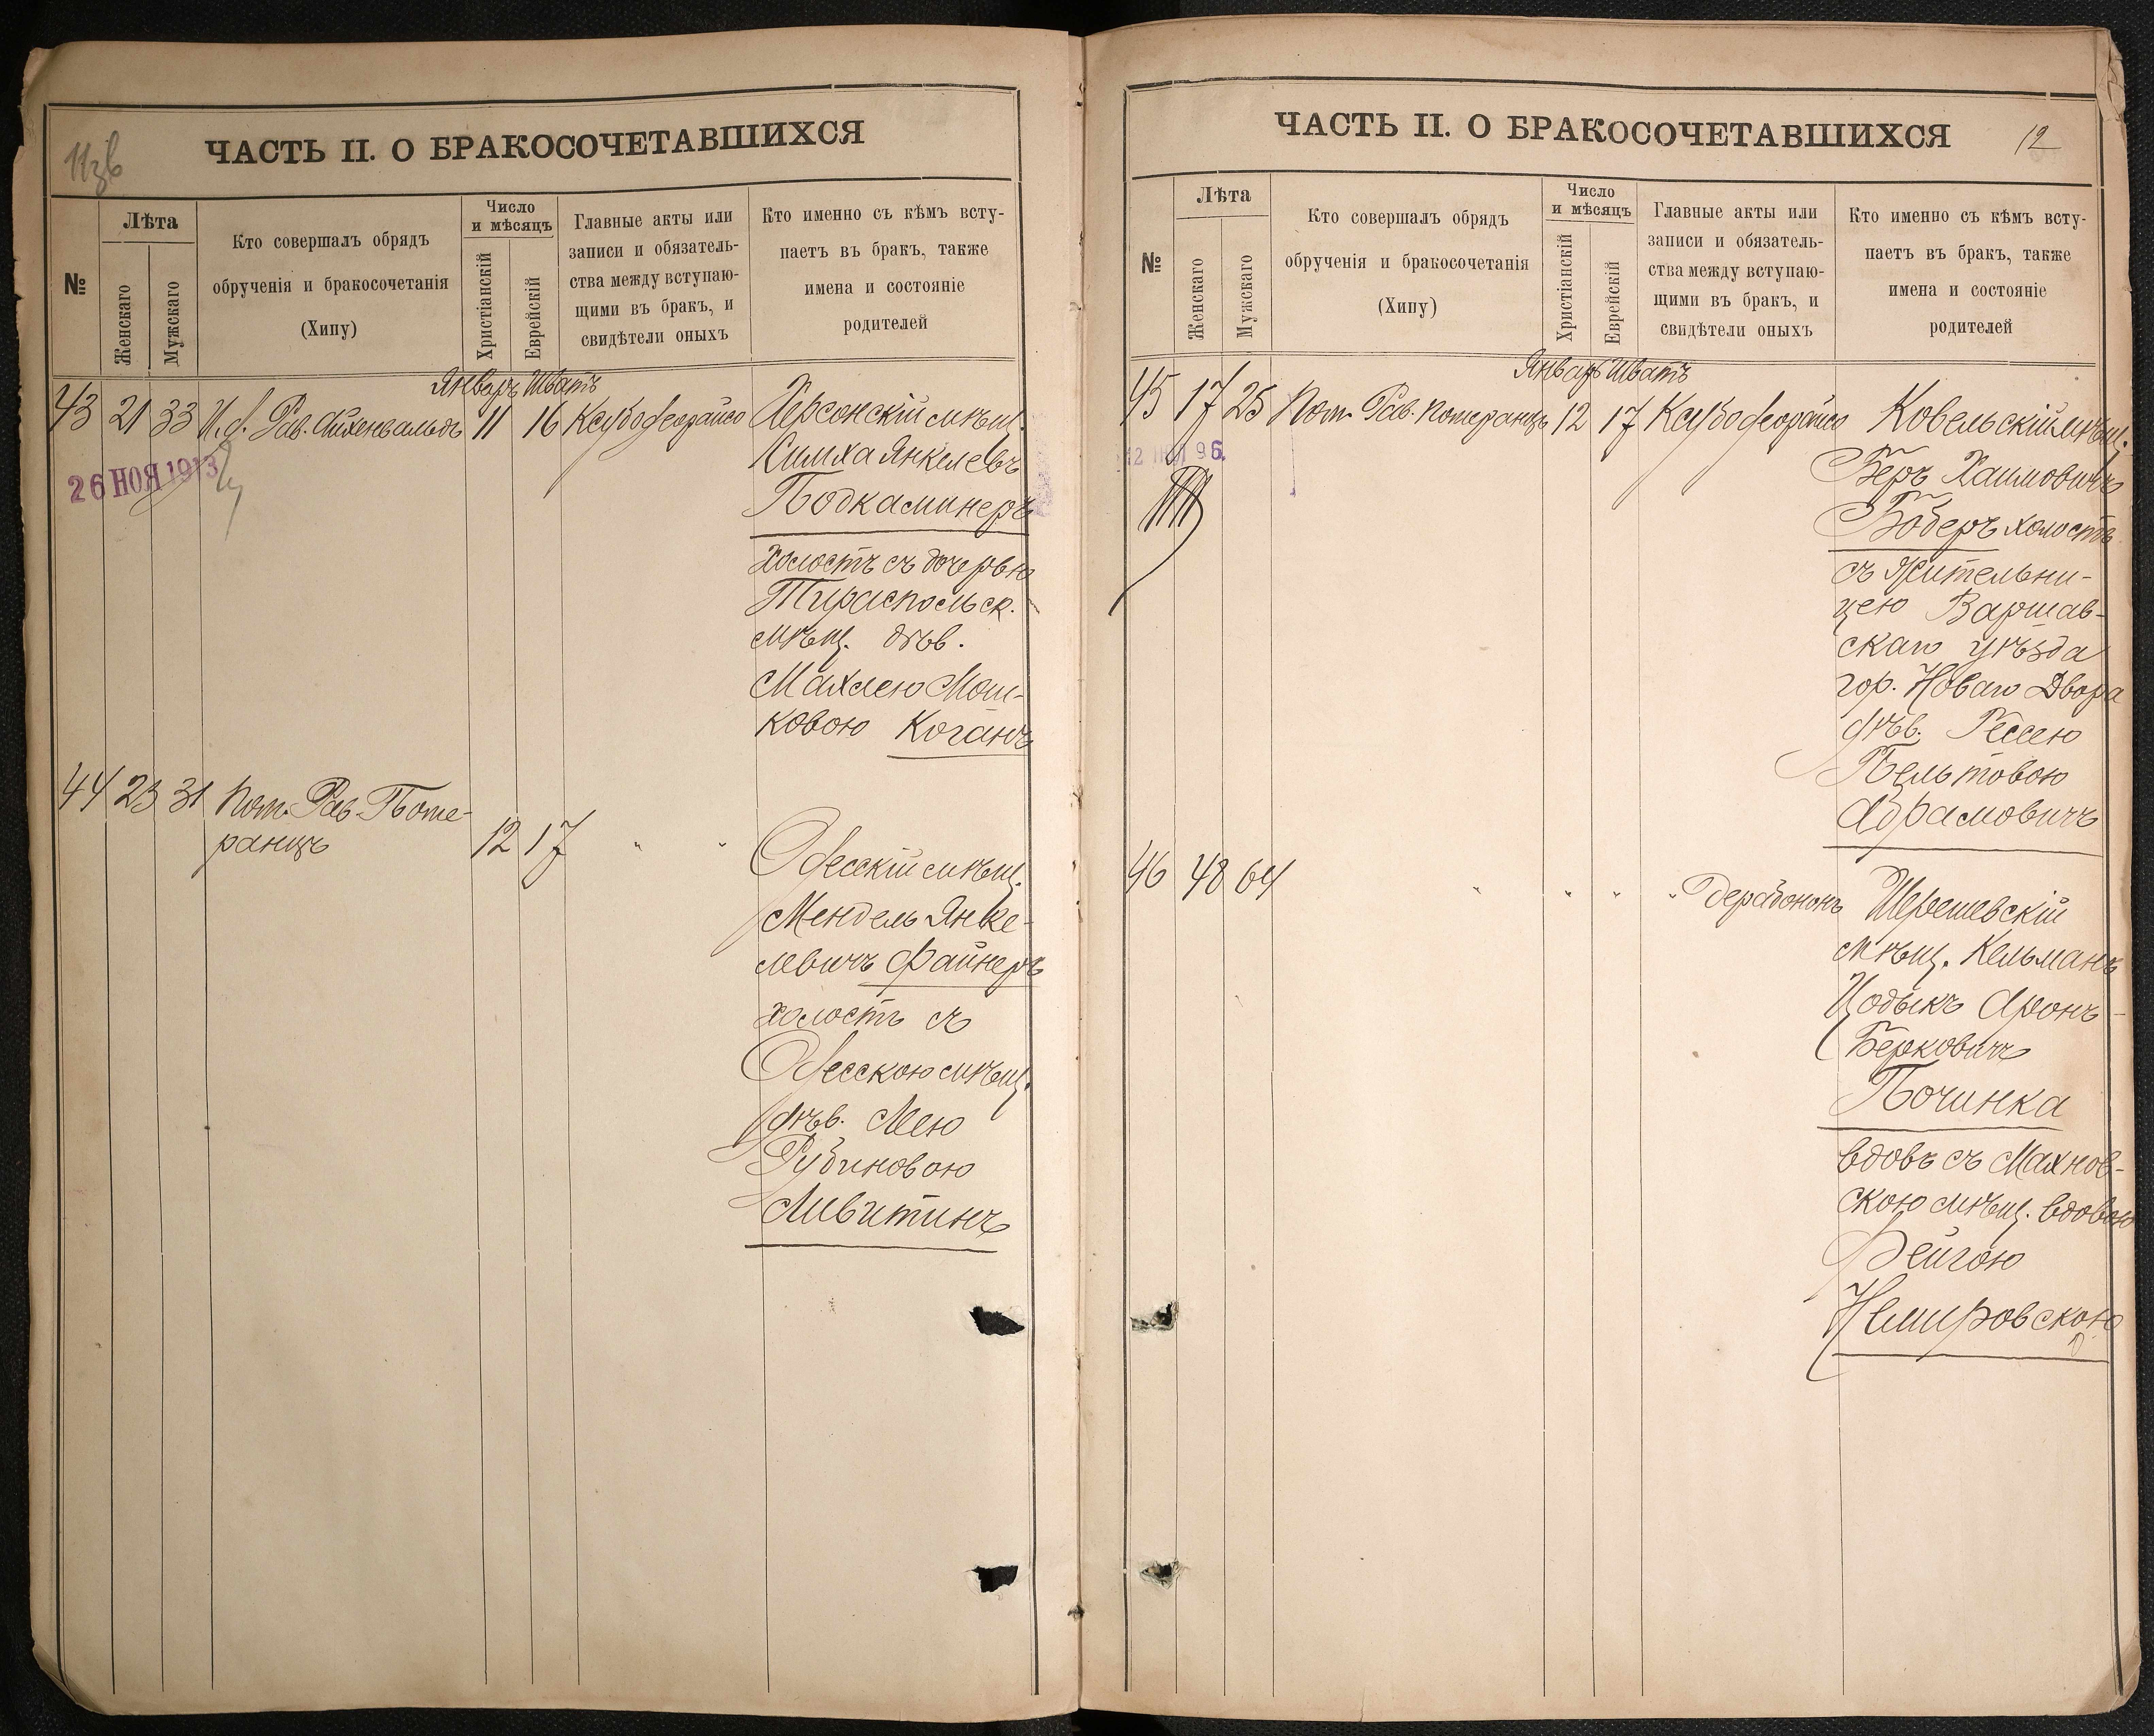 11зв
ЧАСТЬ II. О БРАКОСОЧЕТАВШИХСЯ
№
Лѣта
Женскаго
Мужскаго
Кто совершалъ обрядъ
обрученія и бракосочетанія
(Хипу)
Число
и мѣсяцъ
Христіанскій
Еврейскій
Главные акты или
записи и обязатель-
ства между вступаю-
щими въ бракъ, и
свидѣтели оныхъ
Кто именно съ кѣмъ всту-
паетъ въ бракъ, также
имена и состояніе
родителей
Январь Шватъ
43 21 33 И.д. Рав. Айхенвальдъ 11 16 Ксубо деорайсо Херсонскій мѣщ.
26 НОЯ 1913
Симха Янкелевъ
Подкаминеръ
холостъ съ дочерью
Тираспольск.
мѣщ. дѣв.
Махлею Мош-
ковою Коганъ
44 23 31 Пом. Рав. Поме-
ранцъ 12 17 " "
Одесскій мѣщ.
Мендель Янке-
левичъ Файнеръ
холостъ съ
Одесскою мѣщ.
дѣв. Леею
Рубиновою
Ливитинъ
ЧАСТЬ II. О БРАКОСОЧЕТАВШИХСЯ
12
№
Лѣта
Женскаго
Мужскаго
Кто совершалъ обрядъ
обрученія и бракосочетанія
(Хипу)
Число
и мѣсяцъ
Христіанскій
Еврейскій
Главные акты или
записи и обязатель-
ства между вступаю-
щими въ бракъ, и
свидѣтели оныхъ
Кто именно съ кѣмъ всту-
паетъ въ бракъ, также
имена и состояніе
родителей
Январь Шватъ
45 17 25 Пом. Рав. Померанцъ 12 17 Ксубо деорайсо Ковельскій мѣщ.
Беръ Хаимовичъ
Боберъ холостъ
съ жительни-
цею Варшав-
скаго уѣзда
гор. Новаго Двора
дѣв. Рессею
Пельтовою
Абрамовичъ
46 48 64 " " " " дерабононъ Шерешевскій
мѣщ. Кельманъ
Цодыкъ Аронъ-
Берковичъ
Починка
вдовъ съ Махнов-
скою мѣщ. вдовою
Фейгою
Немировскою